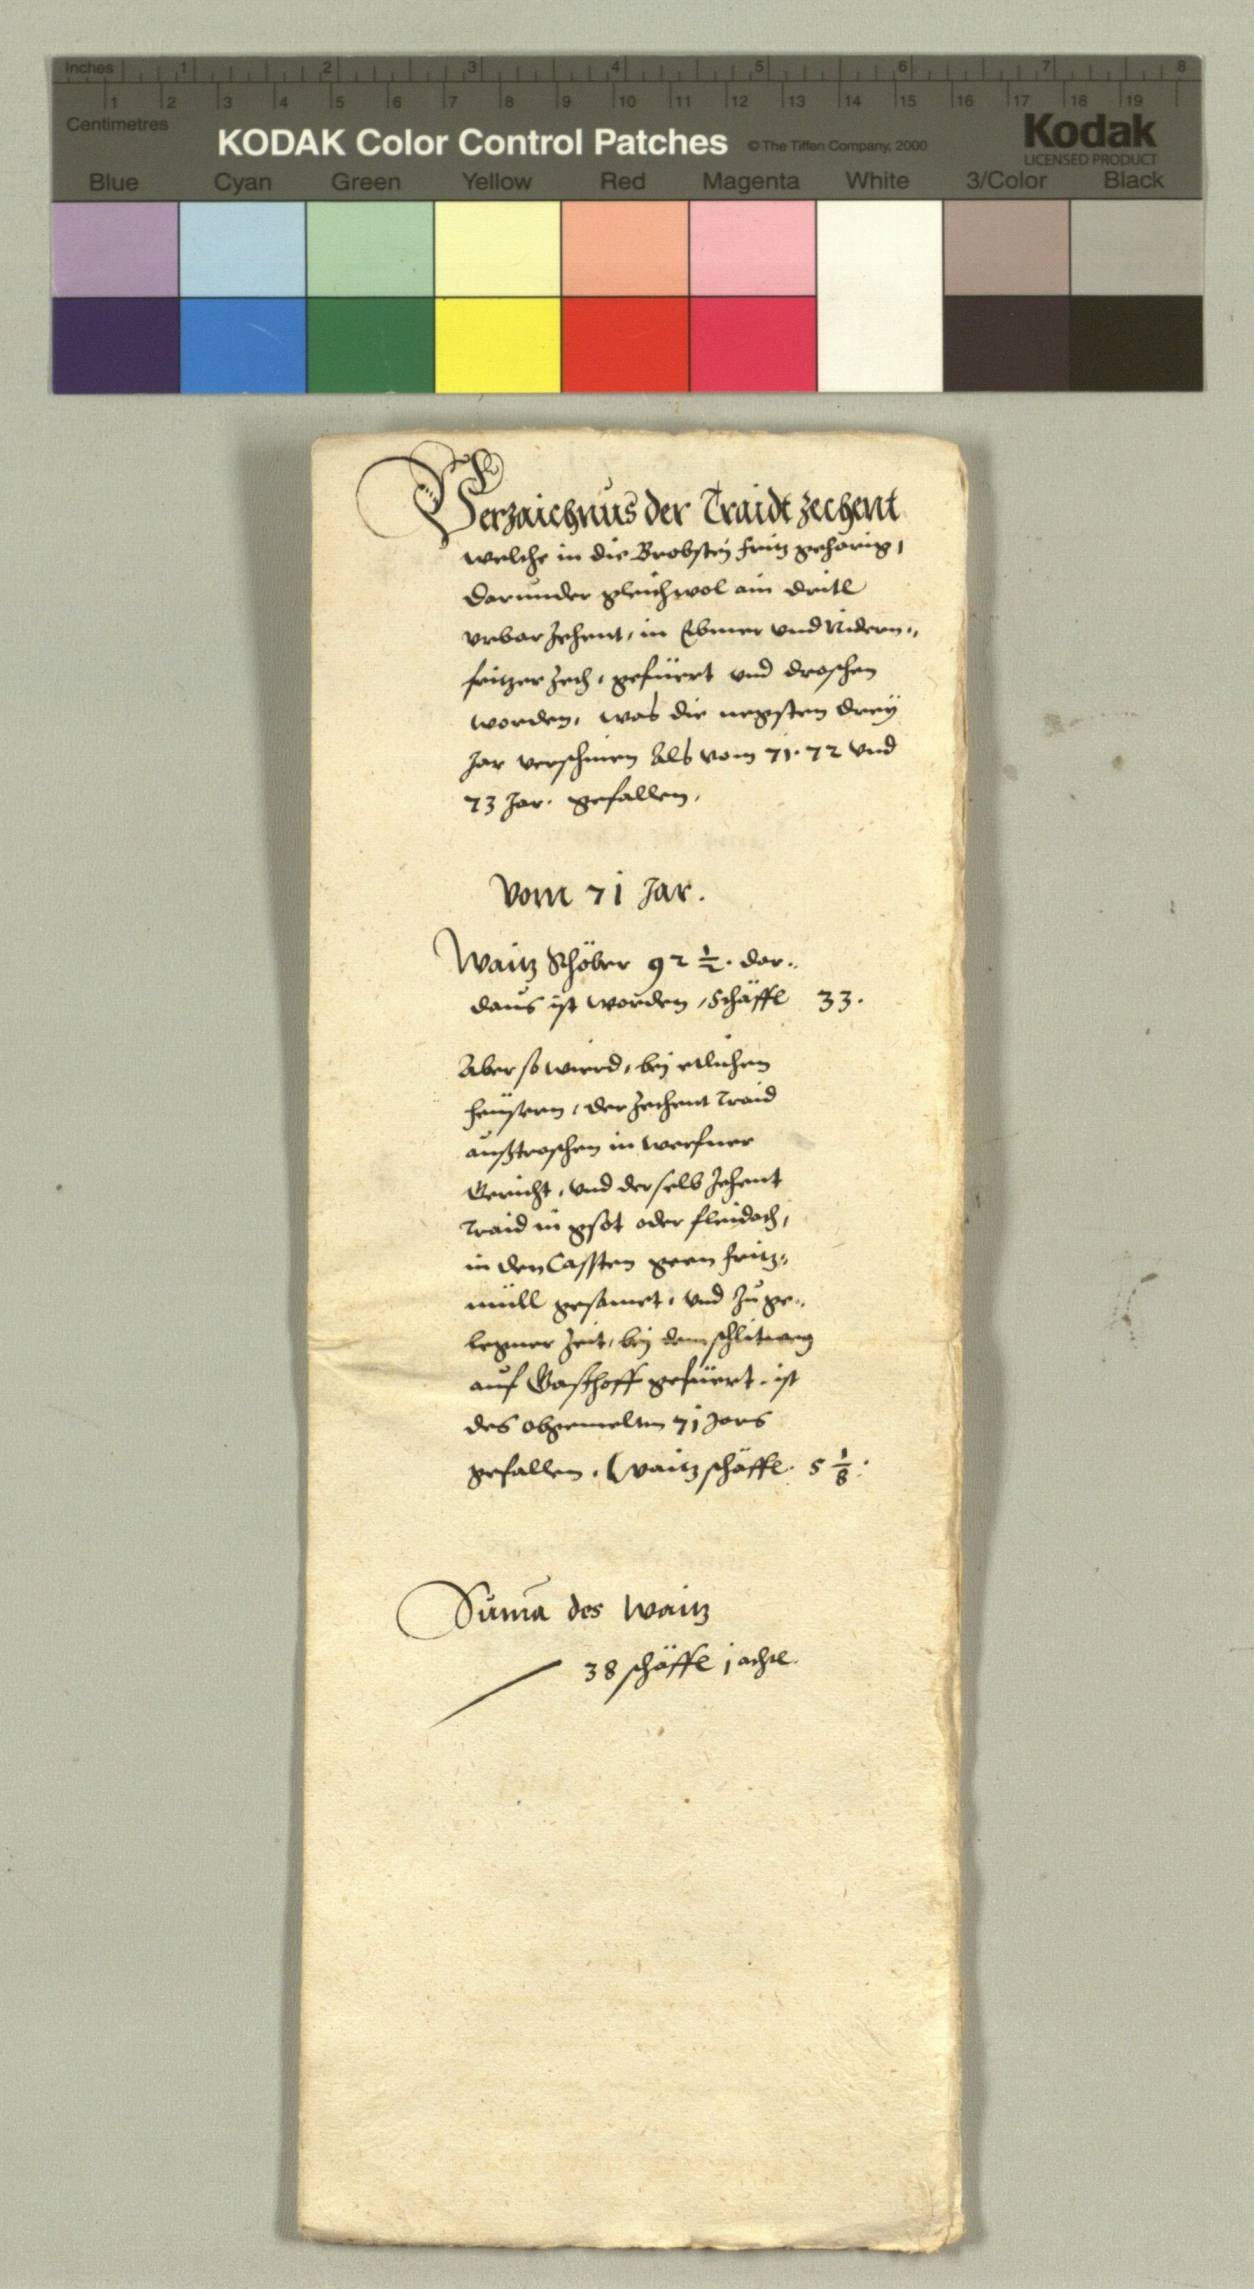 Inches 1 2 3 4 5 6 7 8
1 2 3 4 5 6 7 8 9 10 11 12 13 14 15 16 17 18 19
Centimetres
KODAK Color Control Patches © The Tiffen Company, 2000 Kodak
LICENSED PRODUCT
Blue Cyan Green Yellow Red Magenta White 3/Color Black
Verzaichnus der Traidt zechent
welche in die Brobstey Fritz gehörig,
darunder gleichwol ain dritl
vrbar zehent, in Ebmer vnd Nidern„
fritzer zech, gefüert vnd droschen
worden, was die negsten drey
Jar verschinen Als vom 71. 72 vnd
73 Jar. gefallen.
Vom 71 Jar.
Waitz Schöber 92 ½. dar„
daus ist worden, Schäffl 33.
Aber so wierd, bej etlichen
heüsern, der zechent Traid
außtroschen in werfner
Gericht, vnd derselb zehent
Traid in gsot oder
in den Cassten geen Fritz„
müll gesamet, vnd zu ge„
legner zeit, bej dem schlitweg
auf Gasthoff gefüert. ist
des obgemelten 71 Jars
gefallen. Waitz schäffl. 5 ⅛.
Suma des Waitz
38 schäffl j achtl.